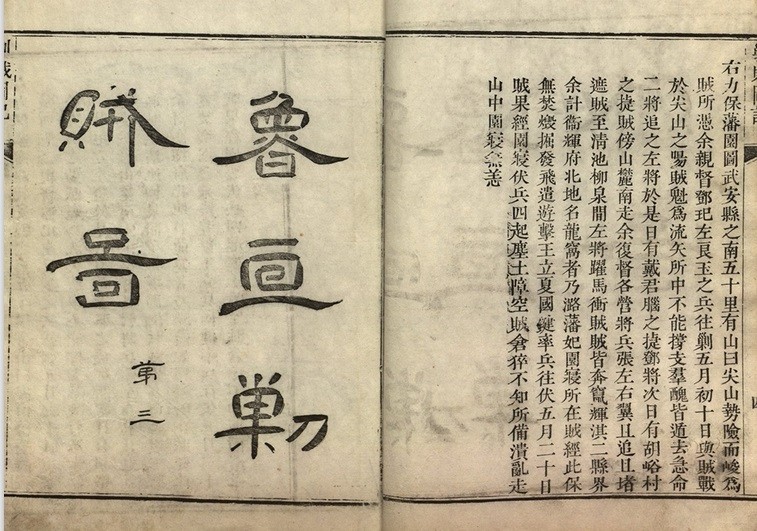 右力保藩園圖武安縣之南五十里有山曰尖山勢險而峻爲
賊所憑余親督鄧玘左良玉之兵往剿五月初十日與賊戰
於尖山之場賊魁爲流矢所中不能撐支羣醜皆遁去急命
二將追之左將於是日有戴君腦之捷鄧將次日有胡峪村
之捷賊傍山麓南走余復督各營將兵張左右翼且追且堵
遮賊至清池柳泉間左將躍馬衝賊賊皆奔竄輝淇二縣界
余計衞輝府北地名龍窩者乃潞藩妃園寢所在賊經此保
無焚燬掘發飛遣遊擊王立夏國鍵率兵往伏五月二十日
賊果經園寢伏兵四起塵土障空賊倉猝不知所備潰亂走
山中園寢無恙
亘剿
賊圖
第三